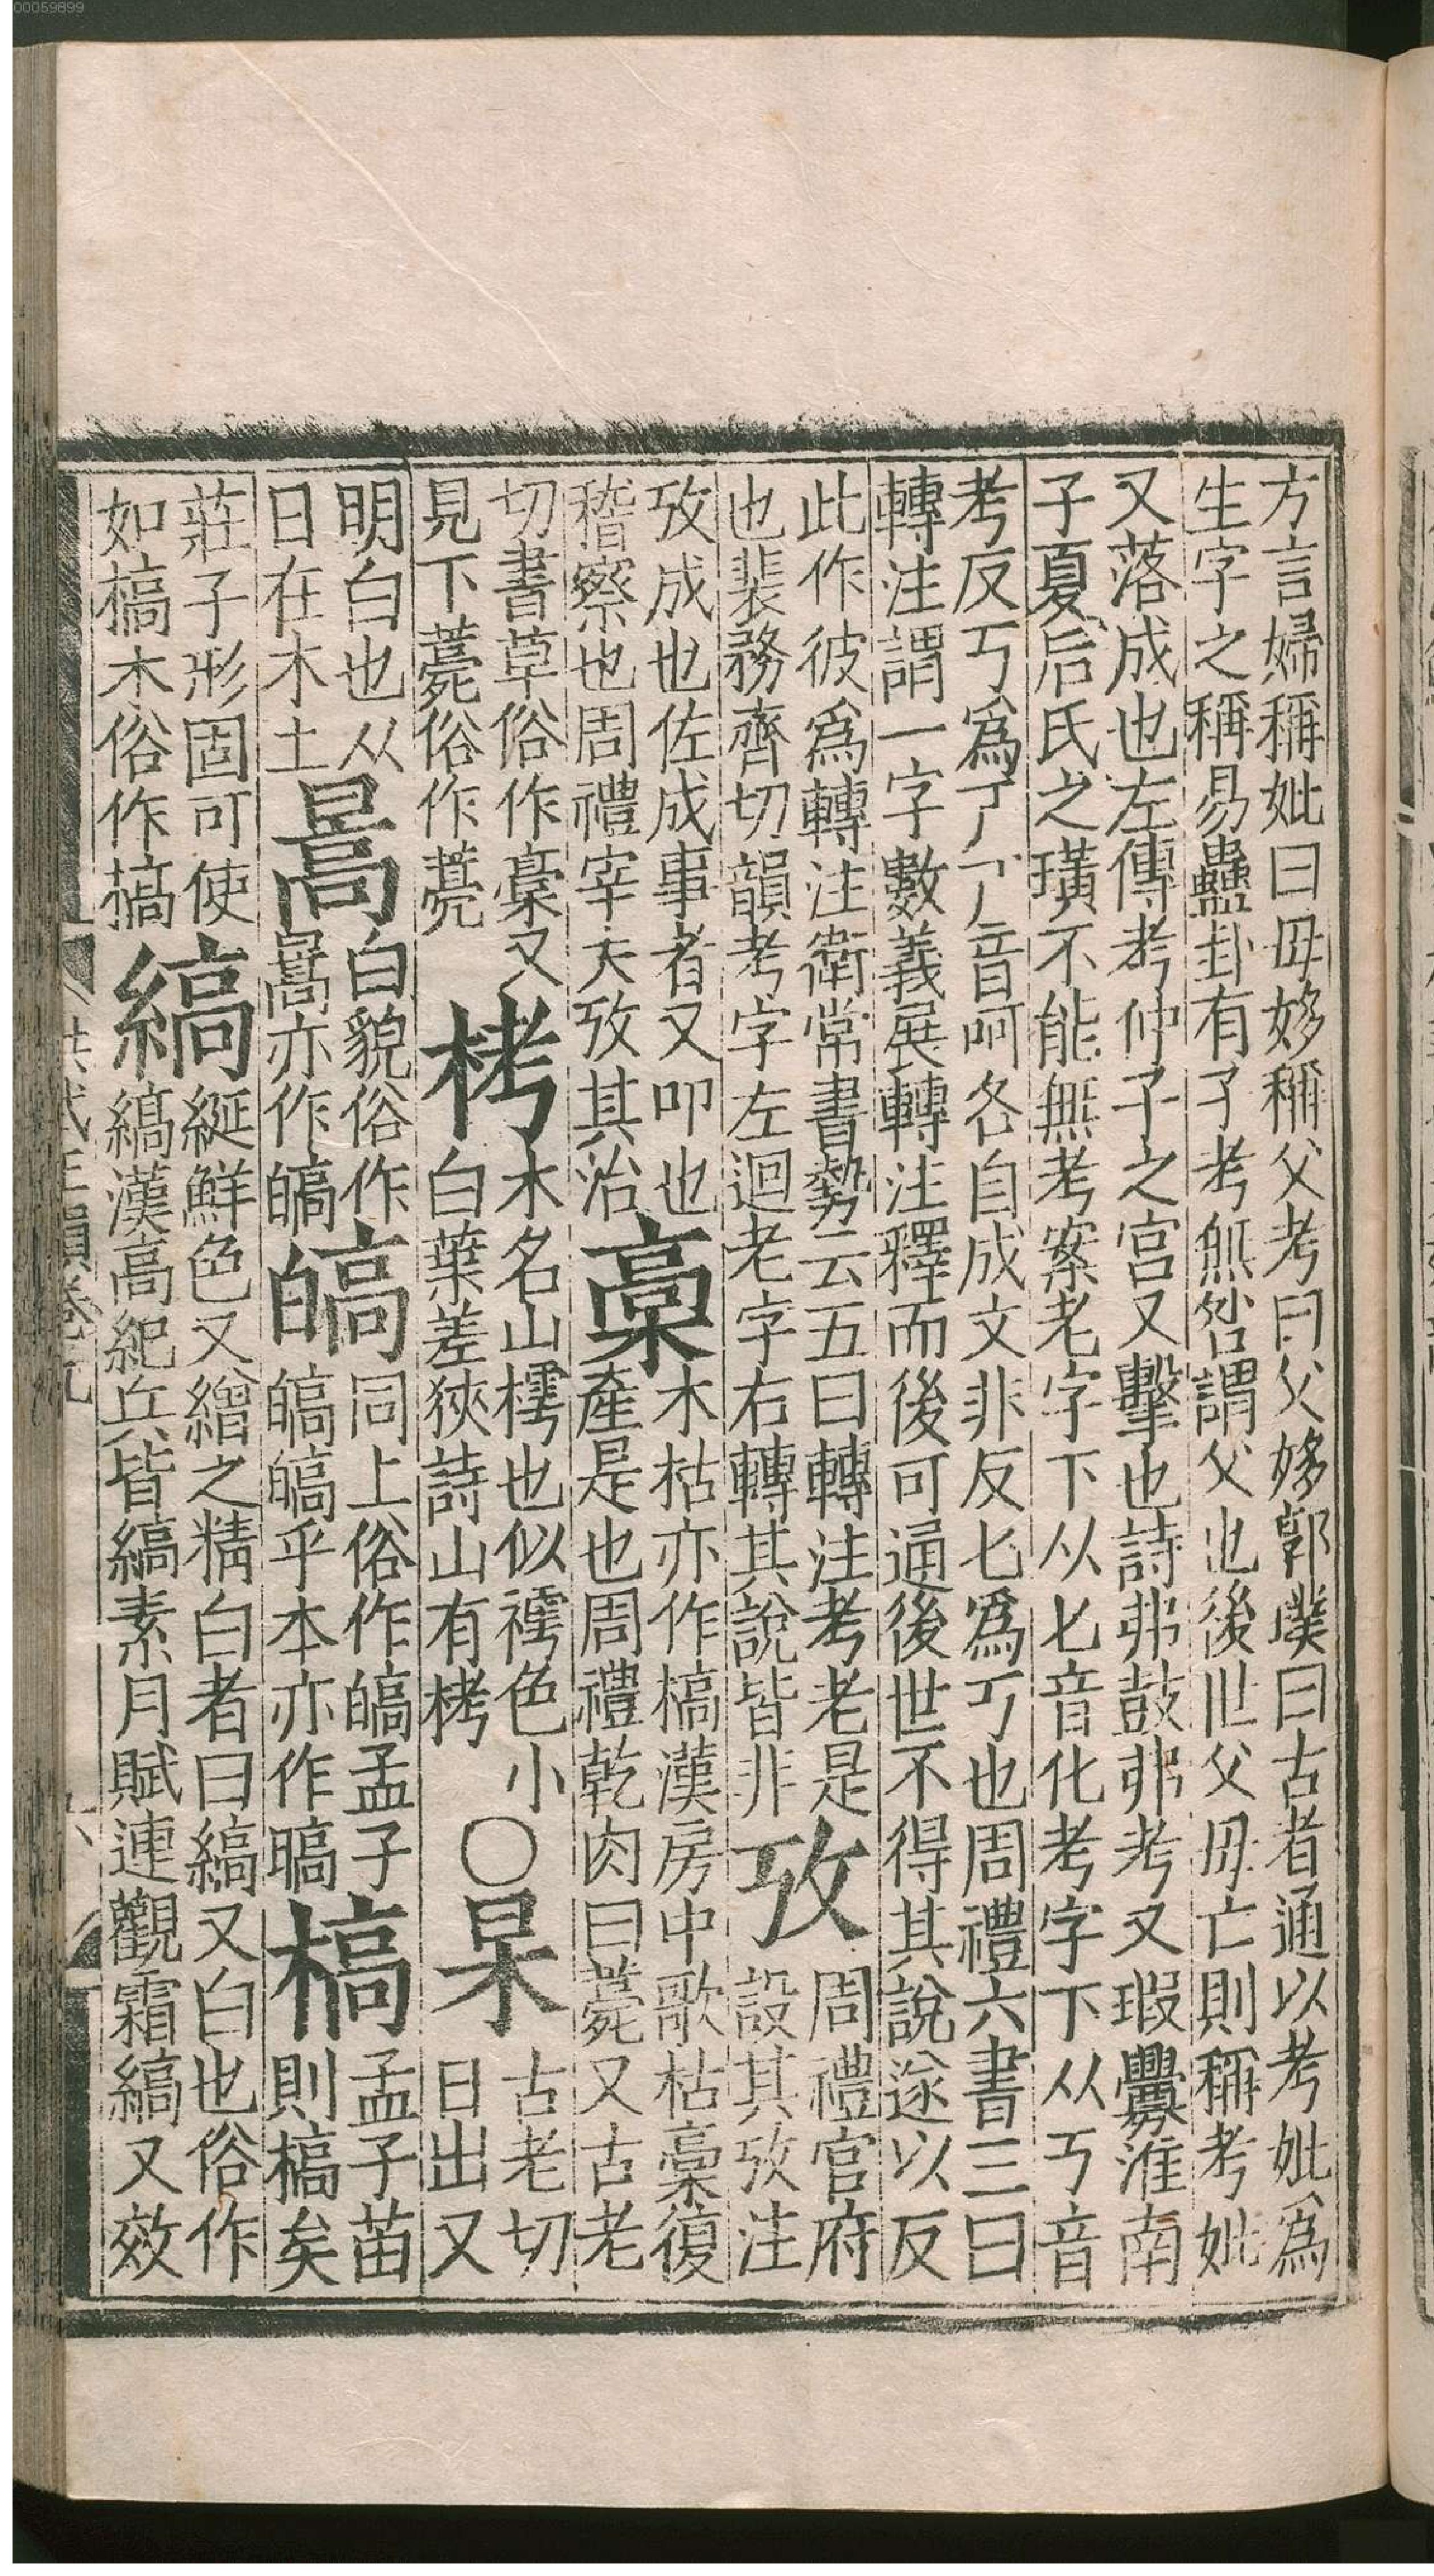 方言婦稱妣曰母姼稱父考曰父姼郭璞曰古者通以考妣爲
生字之稱易蠱卦有子考無咎謂父也後世父母亡則稱考妣
又落成也左傳考仲子之宮又擊也詩弗鼓弗考又瑕釁淮南
子夏后氏之璜不能無考案老字下从匕音化考字下从丂音
考反丂爲𠀀𠀀音呵各自成文非反匕爲丂也周禮六書三曰
轉注謂一字數義展轉注釋而後可通後世不得其說遂以反
此作彼爲轉注衛常書勢云五曰轉注考老是
也裴務齊切韻考字左迴老字右轉其說皆非
攷
周禮官府
設其攷注
攷成也佐成事者又叩也
稽察也周禮宰夫攷其治
稾
木枯亦作槁漢房中歌枯稾復
產是也周禮乾肉曰薨又古老
切書草俗作稾又
見下薨俗作薧
栲
木名山樗也似樗色小
白葉差狹詩山有栲
〇
杲
古老切
日出又
明白也从
日在木上
暠
白貌俗作
暠亦作皜
皜
同上俗作皜孟子
皜皜乎本亦作暠
槁
孟子苗
則槁矣
莊子形固可使
如槁木俗作槁
縞
綖鮮色又繒之精白者曰縞又白也俗作
縞漢高紀兵皆縞素月賦連觀霜縞又效
洪武正韻卷九
六
00059899